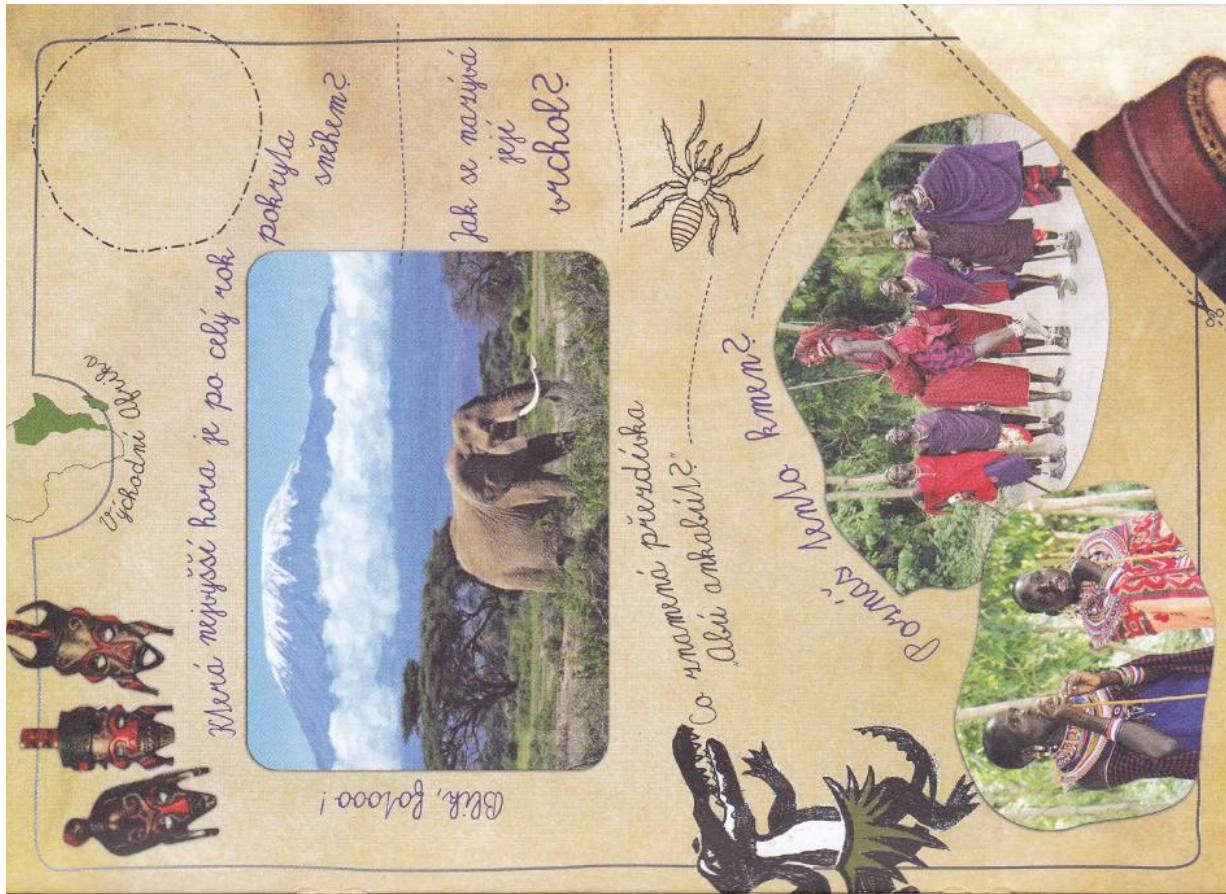 Východní Afrika
Která nejvyšší hora je po celý rok
pokryta
sněhem?
Jak se nazývá
její
vrchol?
Blik, fotooo!
Co znamená přezdívka
„Abú ankabút?“
Poznáš tento kmen?